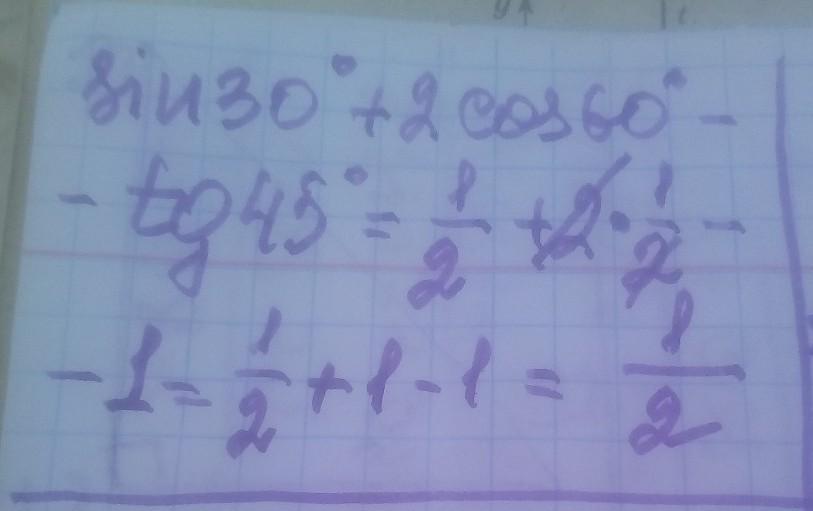 sin30°+2cos60°-
-tg45°=1/2+2·1/2-
-1=1/2+1-1=1/2